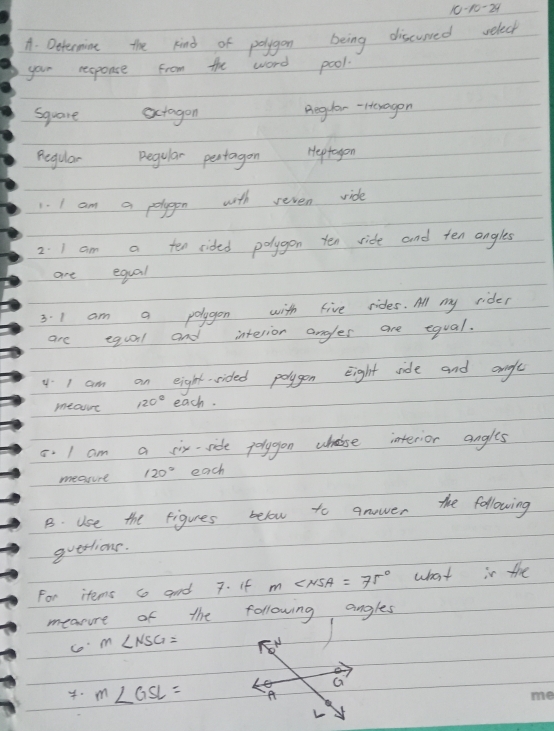 10-10-24
A. Determine the kind of polygon being discussed select
your response from the word pool.
Square Octagon Regular-Hexagon
Regular Regular pentagon Heptagon
1. I am a polygon with seven side
2. I am a ten sided polygon ten side and ten angles
are equal
3. I am a polygon with five sides. All my sides
are equal and interior angles are equal.
4. I am an eight-sided polygon Eight side and angle
measure 120° each.
5. I am a six-side polygon whose interior angles
measure 120° each
B. Use the figures below to answer the following
questions.
For items 6 and 7. if m <NSA = 75° what is the
measure of the following angles
6. m ∠NSG =
7. m ∠GSL =
N
A
G
L
me